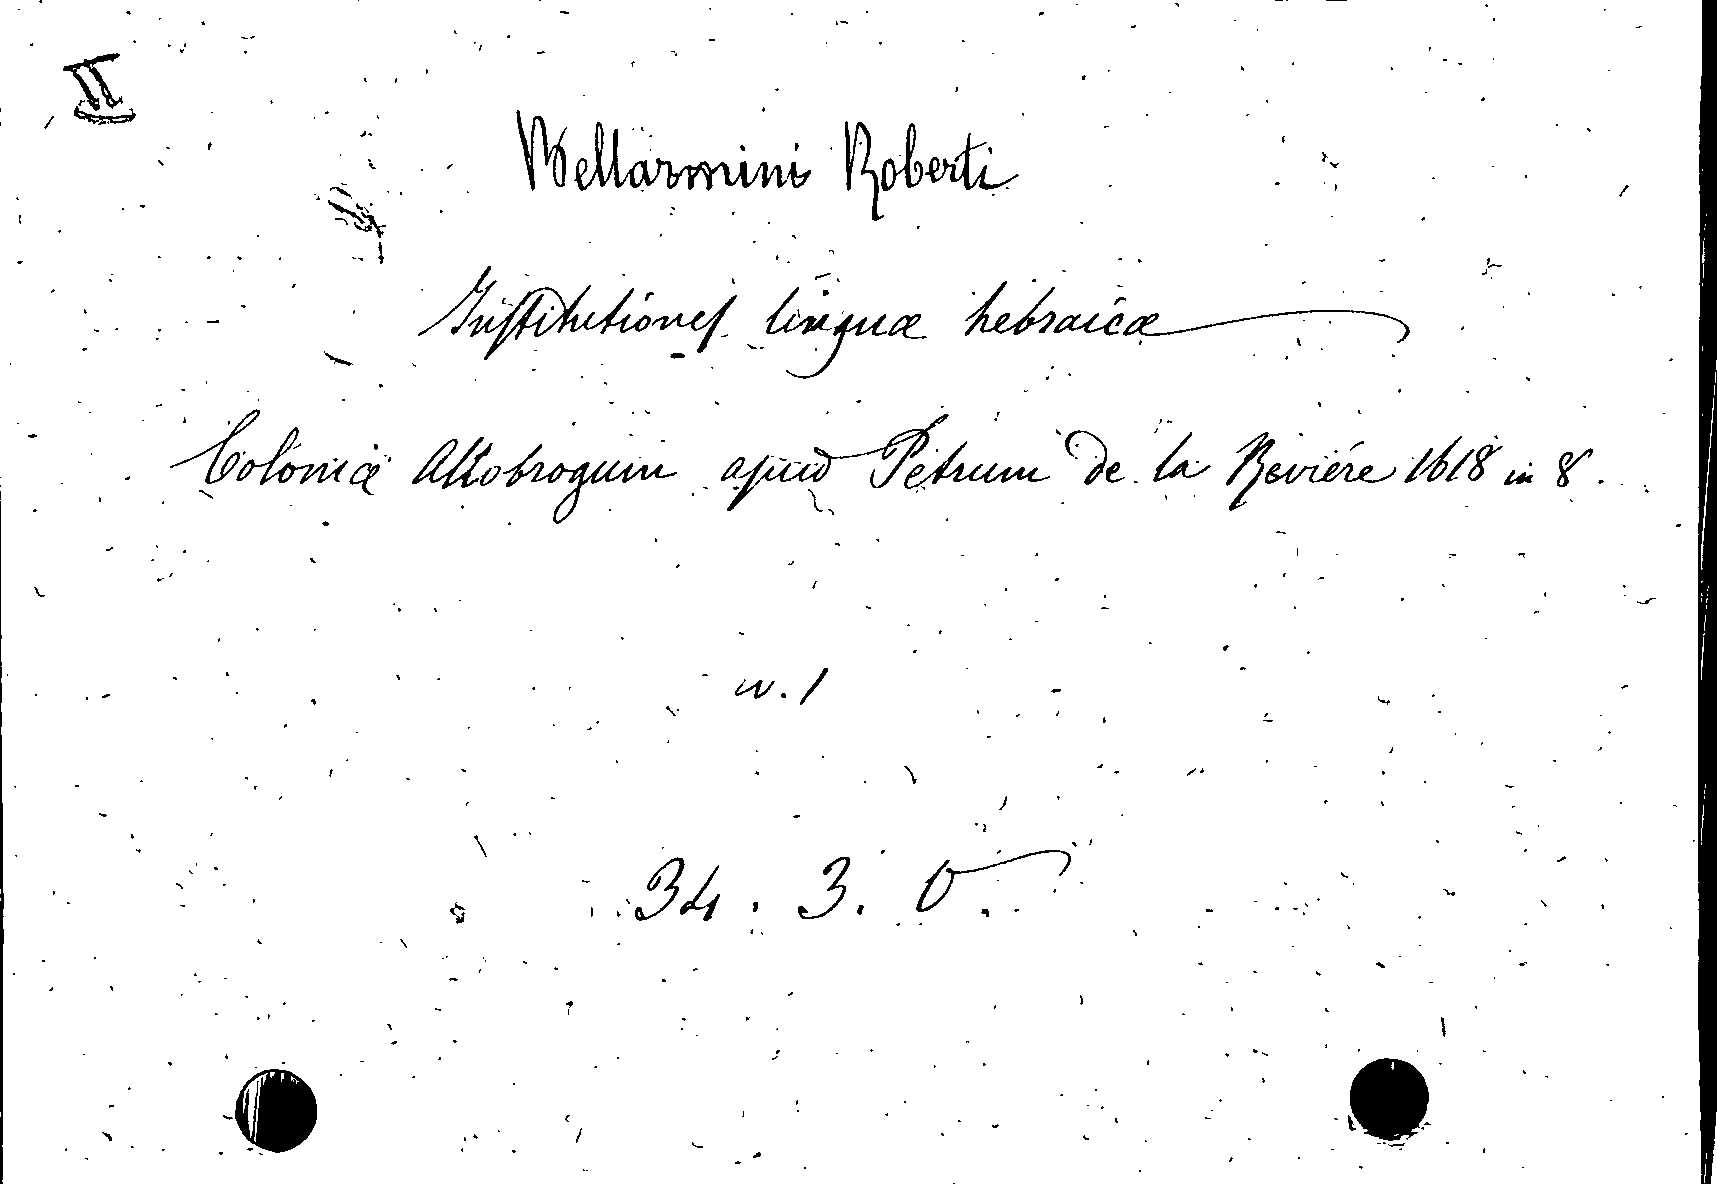 II
Bellarmini Roberti
Institutiones linguæ hebraicæ
Coloniæ Allobrogum apud Petrum de la Reviére 1618 in 8.
v. 1
34. 3. O.